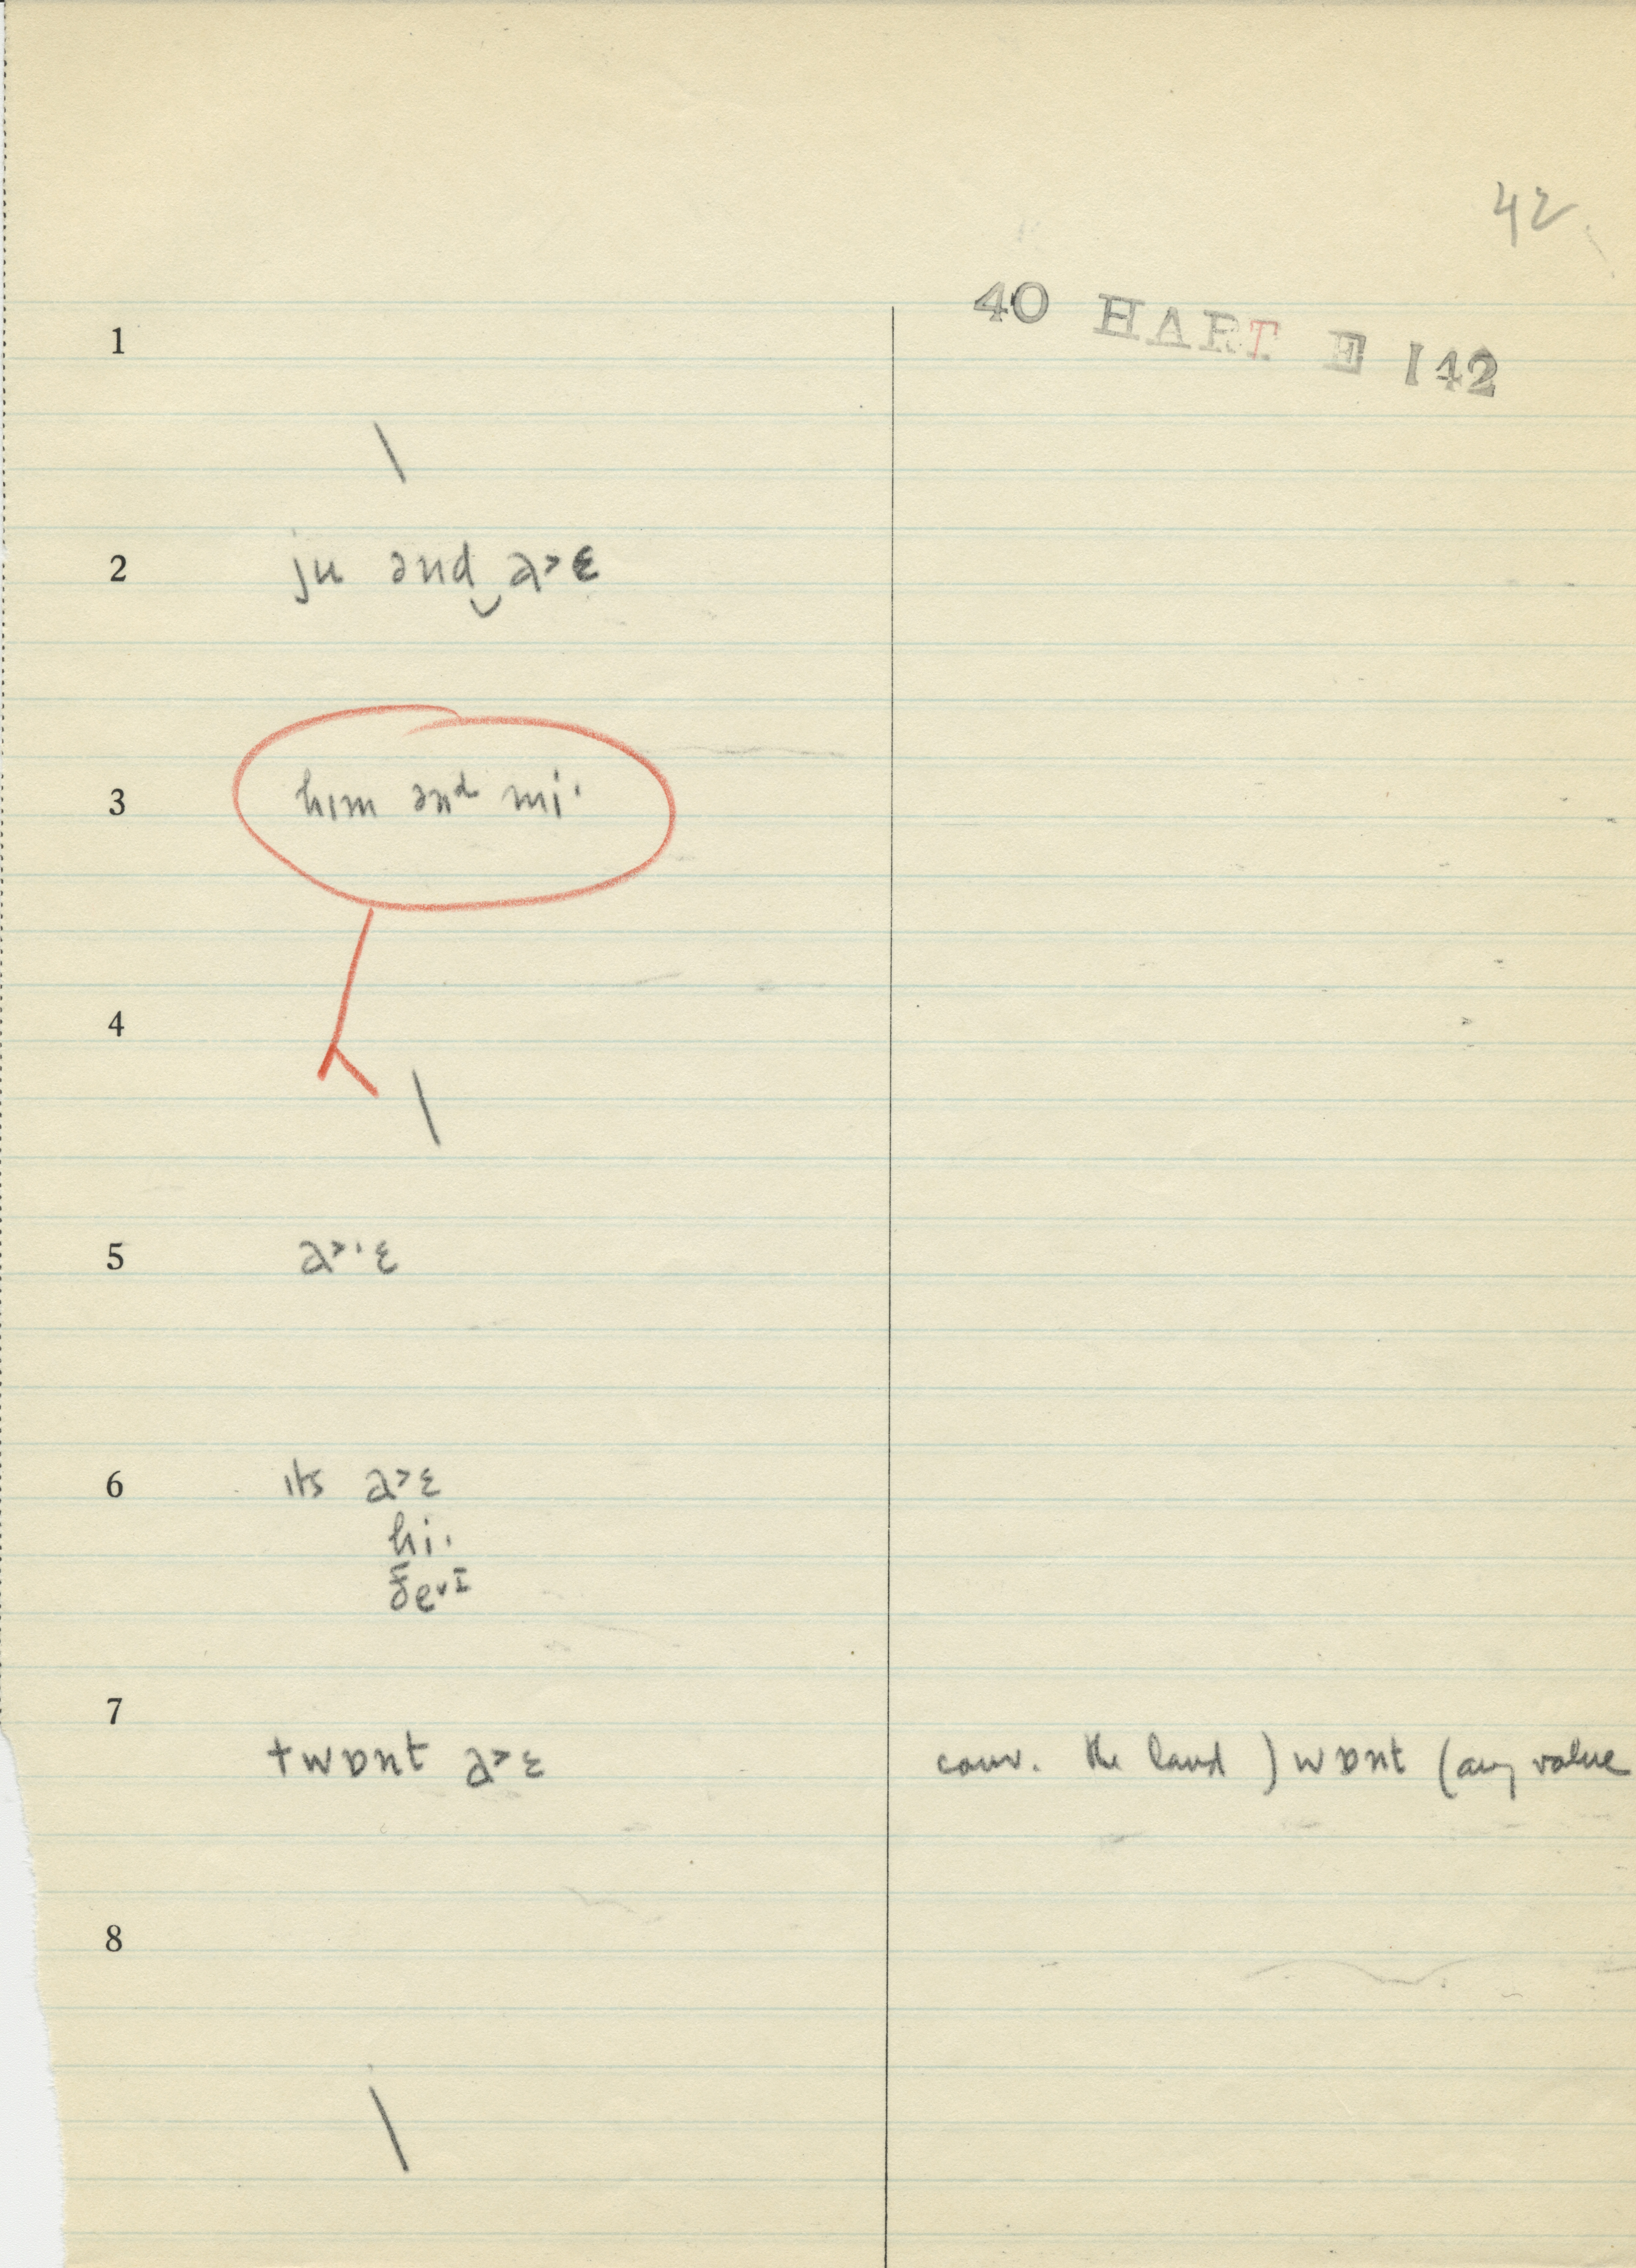 42
40 HART E 142
1
\
2 ju ənd‿a˃ɛ
3 hɪm ənᵈ mi·
4
\
5 a˃·ɛ
6 ɪts a˃ɛ
hi·
ðe˅ɪ
7
twɒnt a˃ɛ conv. the land ) wɒnt (any value
8
\